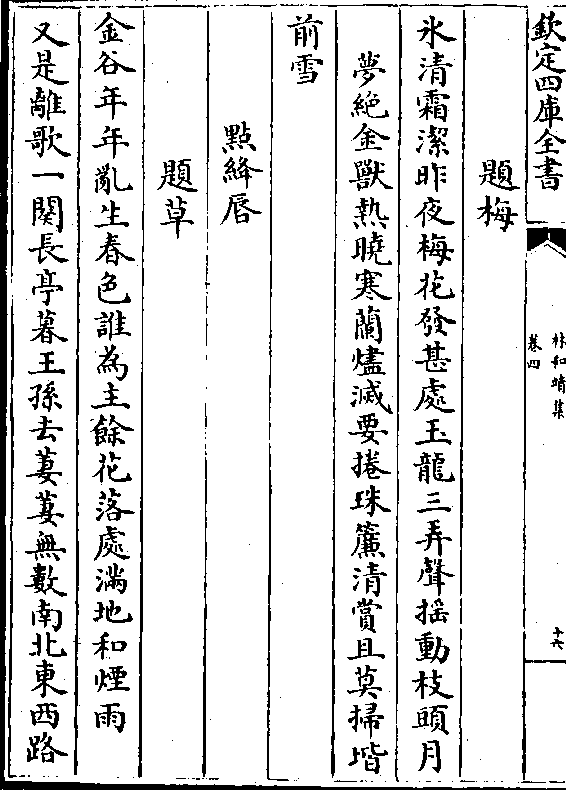 欽定四庫全書
林和靖集
卷四
十六
題梅
氷清霜潔昨夜梅花發甚處玉龍三弄聲揺動枝頭月
夢絶金獸熱曉寒蘭燼滅要捲珠簾清賞且莫掃堦
前雪
點絳唇
題草
金谷年年亂生春色誰為主餘花落處滿地和煙雨
又是離歌一闋長亭暮王孫去萋萋無數南北東西路